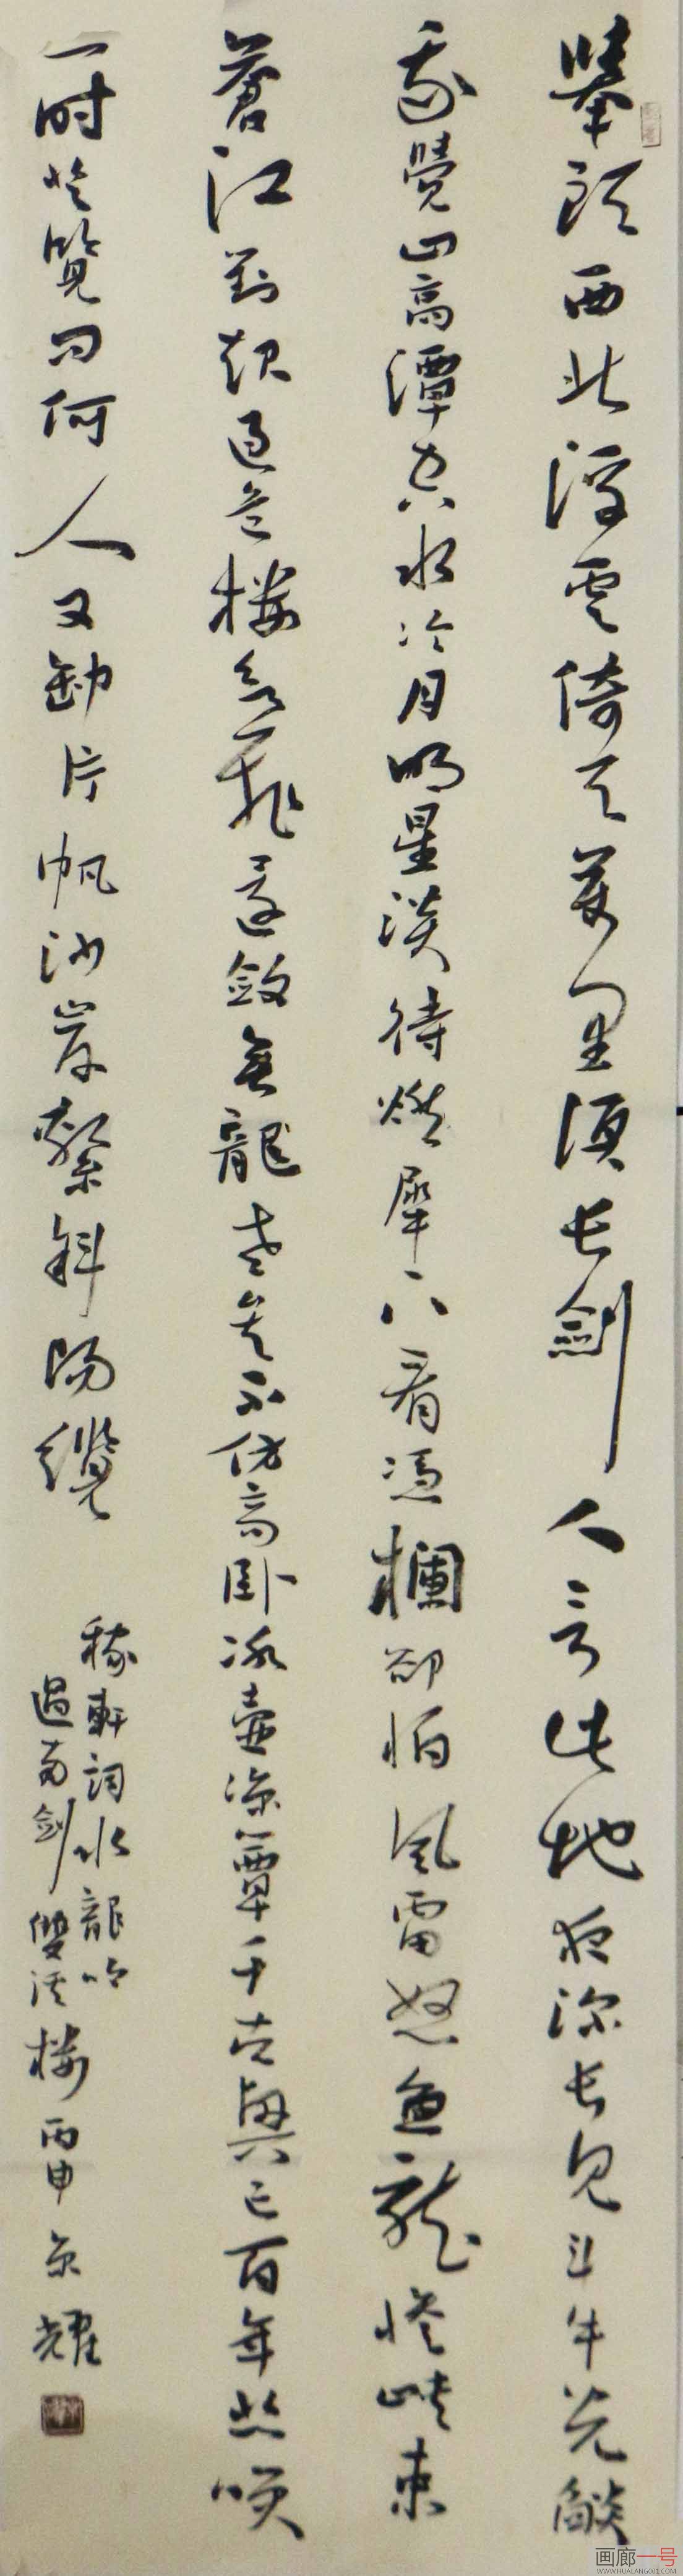 舉頭西北浮雲倚天萬里須長劍人言此地夜深長見斗牛光燄
我覺山高潭空水冷月明星淡待燃犀下看憑欄卻怕風雷怒魚龍慘峽束
蒼江對起過危樓欲飛還斂元龍老矣不仿高臥冰壺涼簟千古興亡百年悲笑
一時登覽問何人又卸片帆沙岸繫斜陽纜
稼軒詞水龍吟
過南劍雙溪樓丙申 耀
画廊一号
WWW.HUALANG001.COM